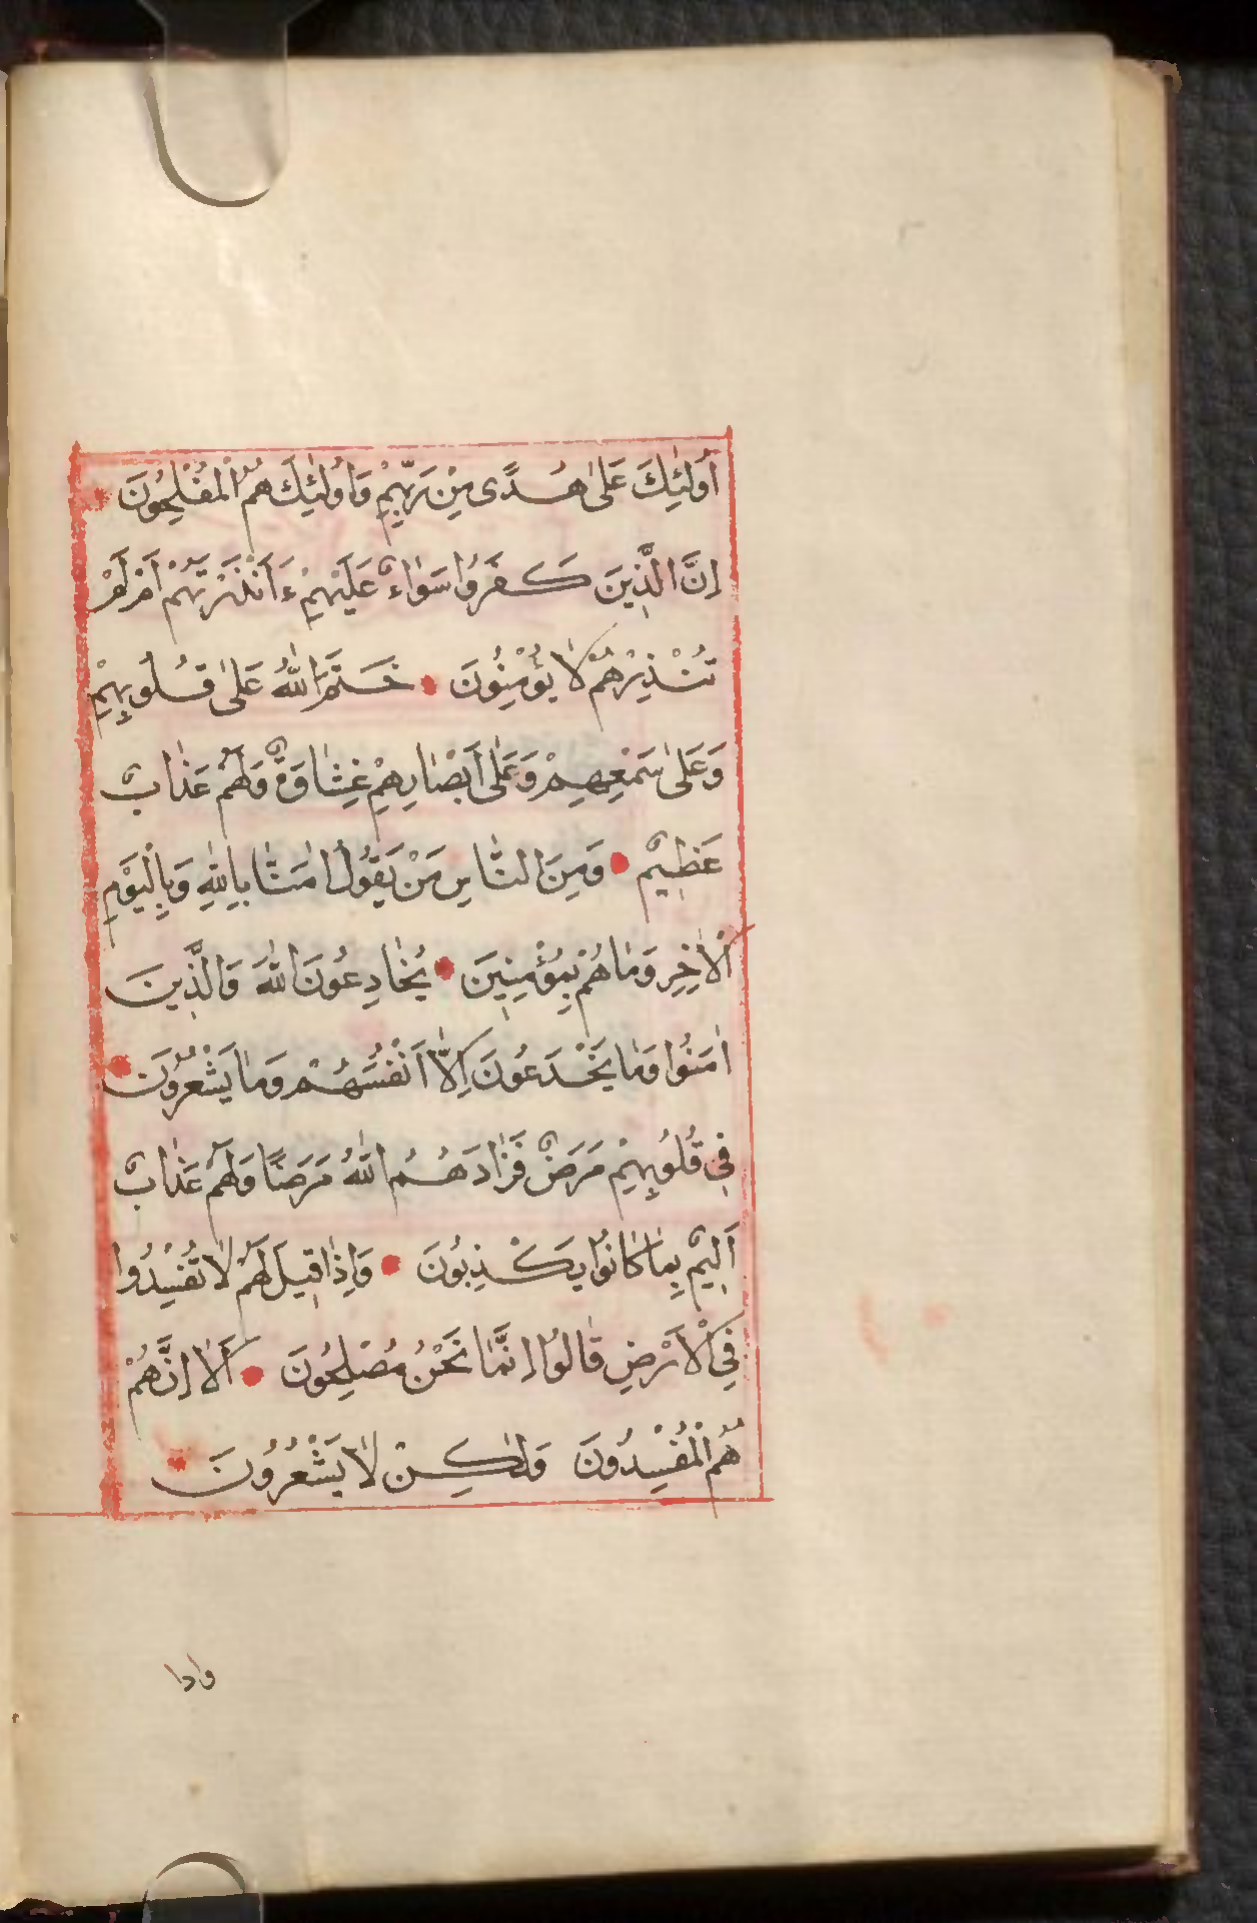 أُولٰئِكَ عَلٰى هُدًى مِنْ رَبِّهِمْ وَاُولٰئِكَ هُمُ الْمُفْلِحُونَ
اِنَّ الَّذِينَ كَفَرُوا سَوَاءٌ عَلَيْهِمْ ءَاَنْذَرْتَهُمْ اَمْ لَمْ
تُنْذِرْهُمْ لَا يُؤْمِنُونَ خَتَمَ اللّٰهُ عَلٰى قُلُوبِهِمْ
وَعَلٰى سَمْعِهِمْ وَعَلٰى اَبْصَارِهِمْ غِشَاوَةٌ وَلَهُمْ عَذَابٌ
عَظِيمٌ وَمِنَ النَّاسِ مَنْ يَقُولُ اٰمَنَّا بِاللّٰهِ وَبِالْيَوْمِ
الْاٰخِرِ وَمَا هُمْ بِمُؤْمِنِينَ يُخَادِعُونَ اللّٰهَ وَالَّذِينَ
اٰمَنُوا وَمَا يَخْدَعُونَ اِلَّا اَنْفُسَهُمْ وَمَا يَشْعُرُونَ
فِى قُلُوبِهِمْ مَرَضٌ فَزَادَهُمُ اللّٰهُ مَرَضًا وَلَهُمْ عَذَابٌ
اَلِيمٌ بِمَا كَانُوا يَكْذِبُونَ وَاِذَا قِيلَ لَهُمْ لَا تُفْسِدُوا
فِى الْاَرْضِ قَالُوا اِنَّمَا نَحْنُ مُصْلِحُونَ اَلَا اِنَّهُمْ
هُمُ الْمُفْسِدُونَ وَلٰكِنْ لَا يَشْعُرُونَ
واذا